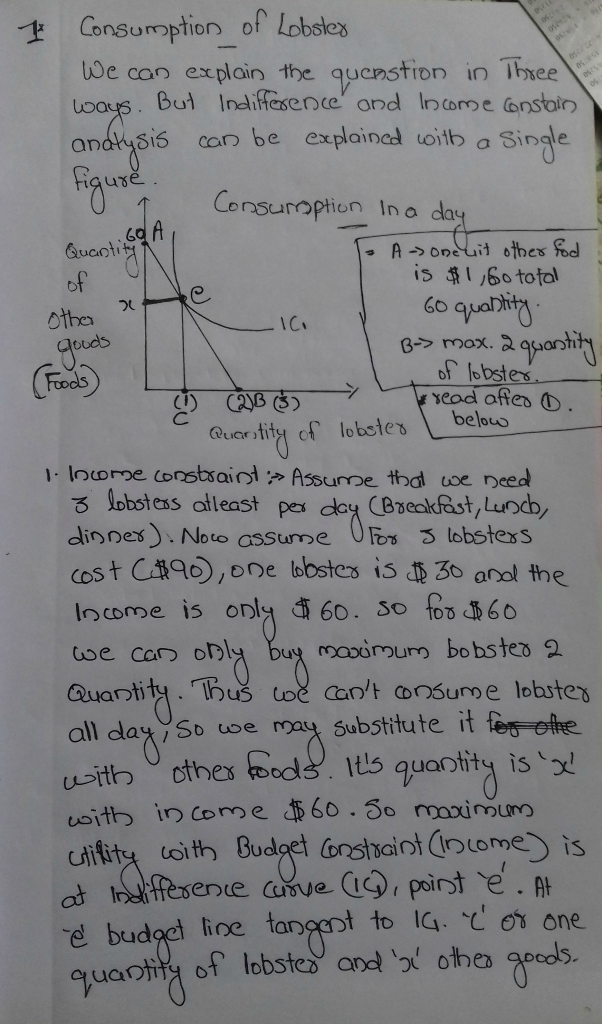 1 Consumption of Lobster
We can explain the quenstion in Three
ways. But Indifference and Income Constain
analysis can be explained with a Single
figure.
Consumption In a day
Quantity
of
Other
goods
(Foods)
60 A
x
e
IC1
(1) (2)B (3)
C
Quantity of lobster
A → one unit other food
is $1, so total
60 quantity.
B-> max. 2 quantity
of lobster.
* read after ①.
below
1. Income constraint :→ Assume that we need
3 lobsters atleast per day (Breakfast, Lunch,
dinner). Now assume For 3 lobsters
cost ($90), one lobster is $30 and the
Income is only $60. so for $60
we can only buy maximum bobster 2
Quantity. Thus we can't consume lobster
all day, So we may substitute it
with other foods. It's quantity is 'x'
with income $60. So maximum
utility with Budget Constraint (Income) is
at Indifference curve (IC1), point 'e'. At
'e' budget line tangent to IC1. 'C' or one
quantity of lobster and 'x' other goods.